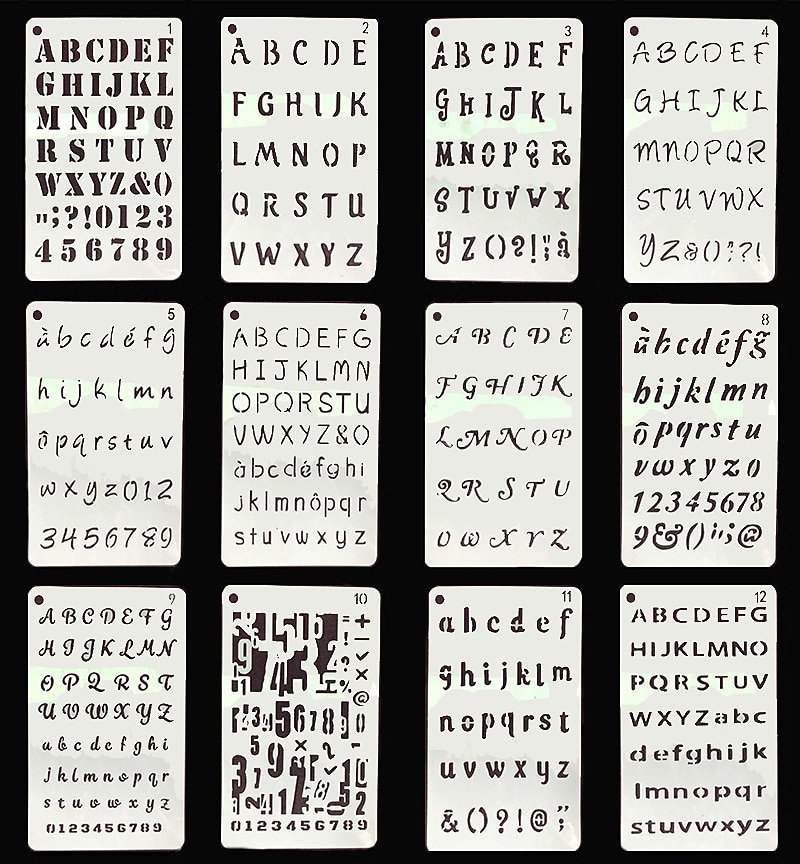 1
ABCDEF
GHIJKL
MNOPQ
RSTUV
WXYZ&()
";?!0123
456789
2
ABCDE
FGHIJK
LMNOP
QRSTU
VWXYZ
3
ABCDEF
GHIJKL
MNOPQR
STUVWX
YZ()?!";à
4
ABCDEF
GHIJKL
MNOPQR
STUVWX
YZ&();?!
5
àbcdéfg
hijklmn
ôpqrstuv
wxyz012
3456789
6
ABCDEFG
HIJKLMN
OPQRSTU
VWXYZ&()
àbcdéfghi
jklmnôpqr
stuvwxyz
7
ABCDE
FGHIJK
LMNOP
QRSTU
VWXYZ
8
àbcdéfg
hijklmn
ôpqrstu
vwxyz()
12345678
9&()";@
9
ABCDEFG
HIJKLMN
OPQRST
UVWXYZ
abcdefghi
jklmnopqr
stuvwxyz
0123456789
10
0123456789
11
abcdef
ghijklm
nopqrst
uvwxyz
&()?!@";
12
ABCDEFG
HIJKLMNO
PQRSTUV
WXYZabc
defghijk
lmnopqr
stuvwxyz